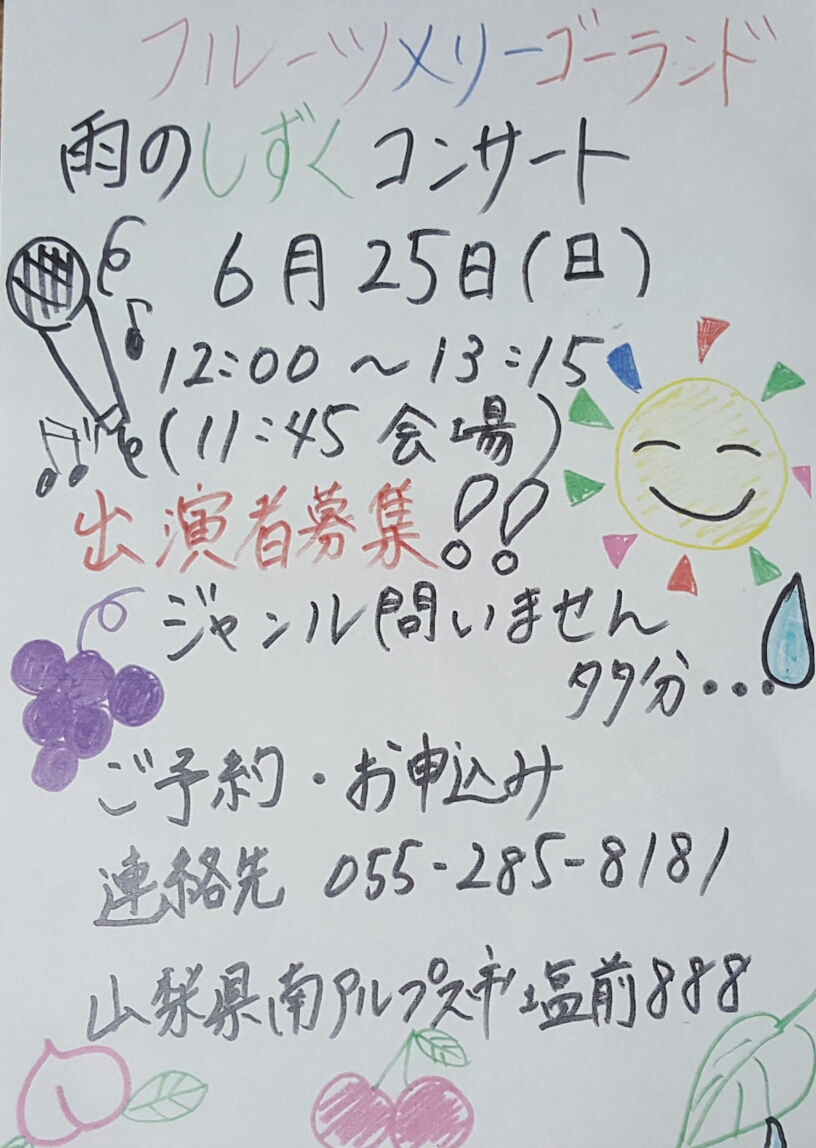 フルーツメリーゴーランド
雨のしずくコンサート
6月25日(日)
12:00～13:15
(11:45会場)
出演者募集!!
ジャンル問いません
タタ分・・・
ご予約・お申込み
連絡先 055-285-8181
山梨県南アルプス市塩前888